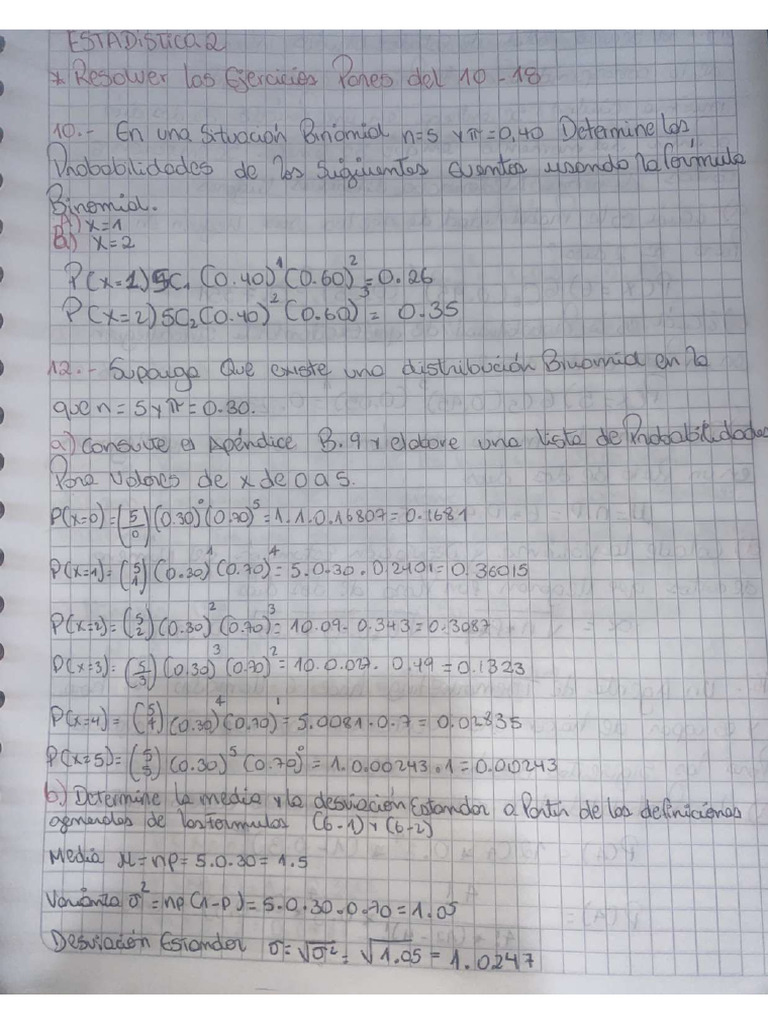 ESTADISTICA 2
* Resolver los Ejercicios Pares del 10 - 18
10.- En una Situación Binomial n=5 y π=0,40 Determine las
Probabilidades de los siguientes eventos usando la fórmula
Binomial.
A) x=1
B) x=2
P(x=1) 5C₁ (0.40)¹ (0.60)² = 0.26
P(x=2) 5C₂ (0.40)² (0.60)³ = 0.35
12.- Suponga Que existe una distribución Binomial en la
que n=5 y π=0.30.
a) Consulte el Apéndice B.9 y elabore una lista de Probabilidades
Para Valores de x de 0 a 5.
P(x=0)=(5/0)(0.30)⁰(0.70)⁵=1.1.0.16807=0.1681
P(x=1)=(5/1)(0.30)¹(0.70)⁴=5.0.30.0,2401=0.36015
P(x=2)=(5/2)(0.30)²(0.70)³=10.09.0.343=0.3087
P(x=3)=(5/3)(0.30)³(0.70)²=10.0.027.0.49=0.1323
P(x=4)=(5/4)(0.30)⁴(0.70)¹=5.0081.0.7=0.02835
P(x=5)=(5/5)(0.30)⁵(0.70)⁰=1.0.00243.1=0.00243
b) Determine la media y la desviación Estandar a Partir de las definiciones
generales de las formulas (6-1) y (6-2)
Media μ=np=5.0.30=1.5
Varianza σ²=np(1-p)=5.0.30.0.70=1.05
Desviación Estandar σ=√σ²=√1.05=1.0247